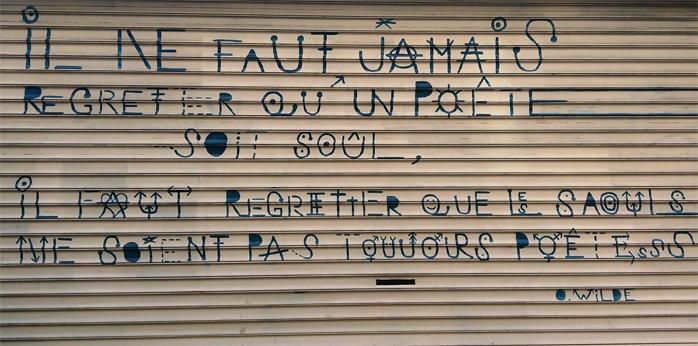 IL NE FAUT JAMAIS
REGRETTER QU'UN POÊTE
SOIT SOÛL,
IL FAUT REGRETTER QUE LES SAOULS
NE SOIENT PAS TOUJOURS POÊTESSS
O. WILDE